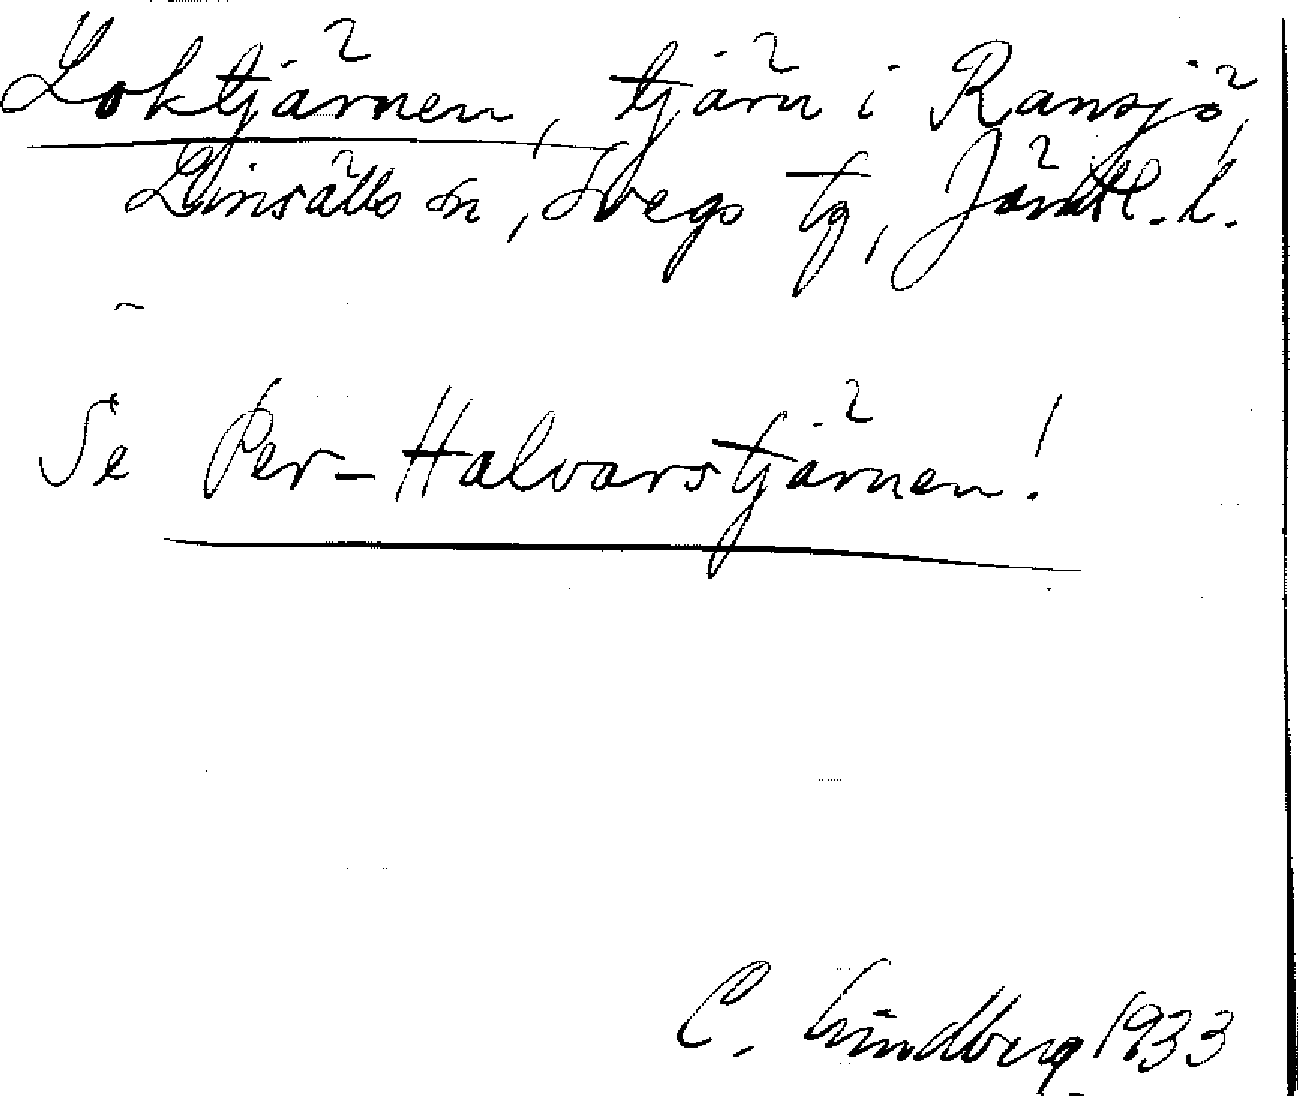 Loktjärnen, tjärn i Ransjö,
Linsälls sn, Svegs tg, Jämtl. l.
Se Per-Halvarstjärnen!
C. Lindberg 1933